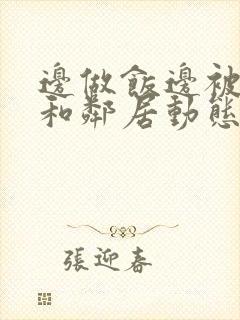 邊做飯邊被
和鄰居動態
張迎春